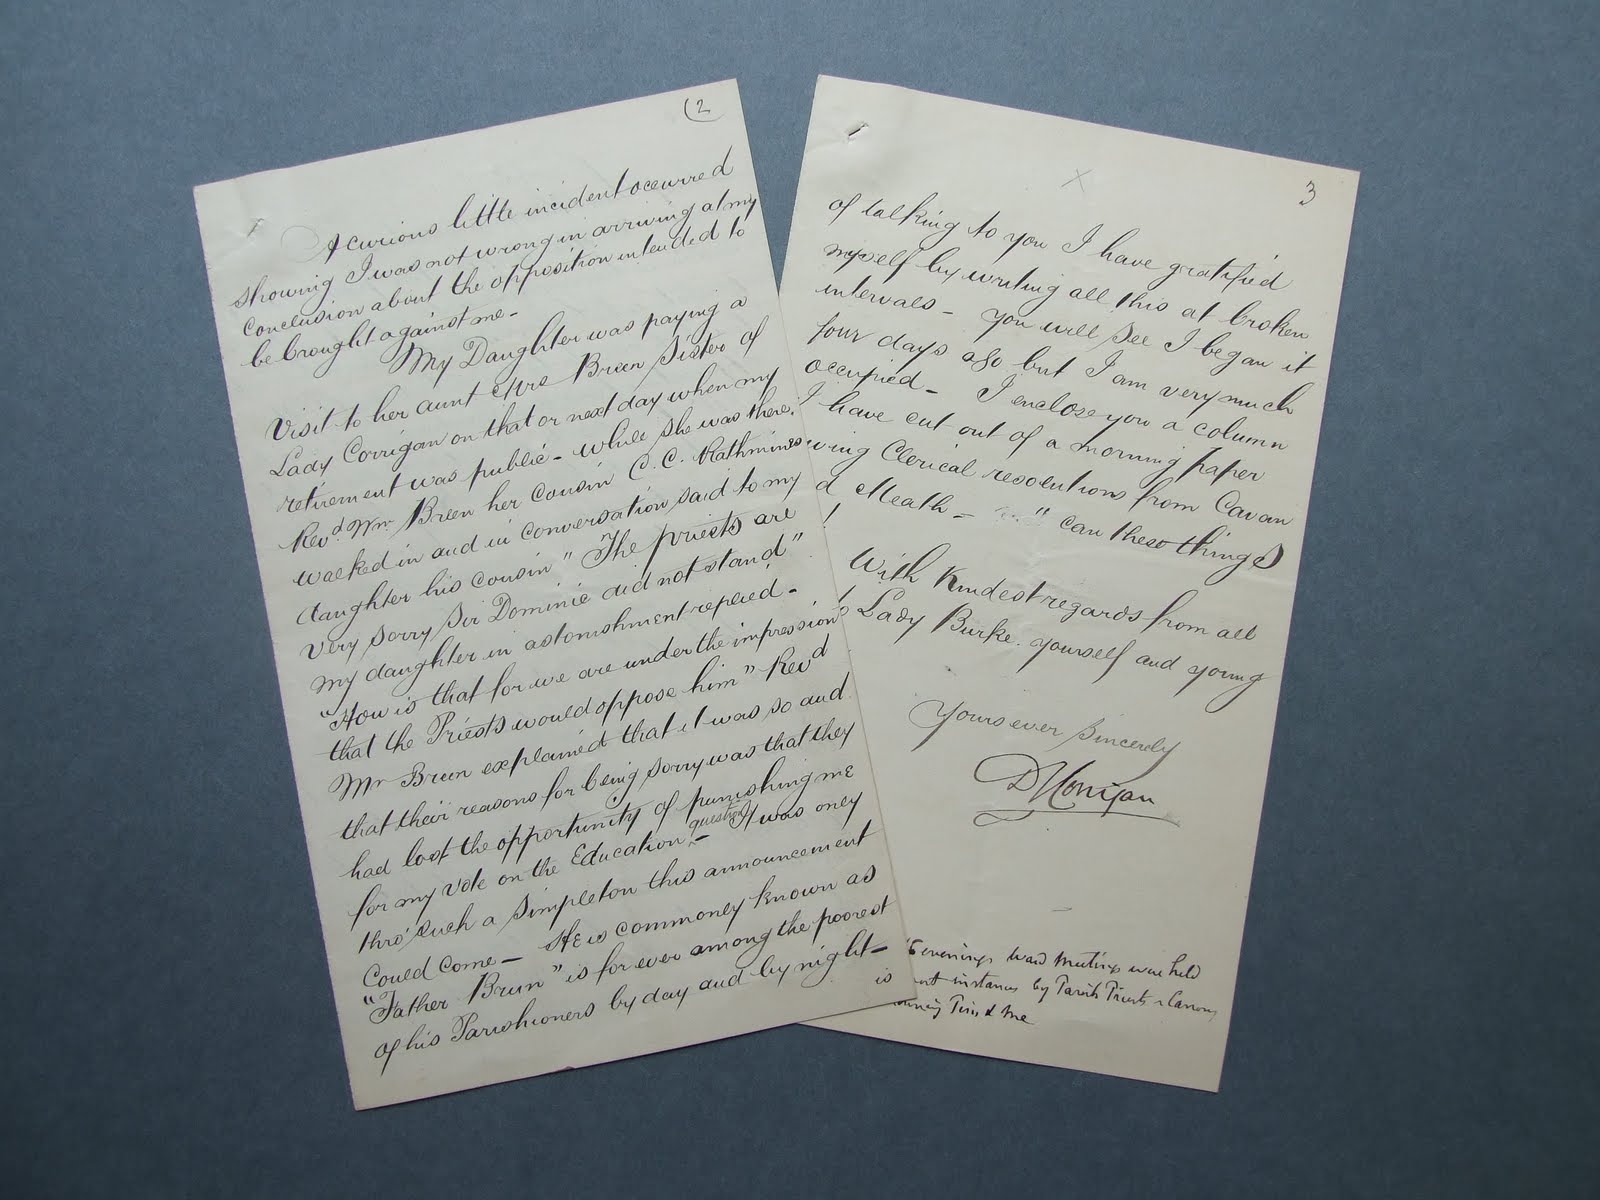 (2
A curious little incident occurred
showing I was not wrong in arriving at my
Conclusion about the opposition intended to
be brought against me -
My Daughter was paying a
visit to her aunt Mrs Breen Sister of
Lady Corrigan on that or next day when my
retirement was public - while she was there,
Revd. Wm. Breen her Cousin C. C. Rathmines
walked in and in conversation said to my
daughter his cousin " The priests are
very sorry Sir Dominic did not stand".
My daughter in astonishment replied -
"How is that for we are under the impression
that the Priests would oppose him" Revd
Mr Breen explained that it was so and
that their reasons for being sorry was that they
had lost the opportunity of punishing me
for my vote on the Education question - It was only
thro' such a simpleton this announcement
Could come - He is commonly known as
"Father Breen" is for ever among the poorest
of his Parishioners by day and by night -
is
3
of talking to you I have gratified
myself by writing all this at broken
intervals - you will see I began it
four days ago but I am very much
occupied - I enclose you a column
I have cut out of a morning paper
Clerical resolutions from Cavan
Meath - " can these things
With Kindest regards from all
Lady Burke. yourself and young
Yours ever Sincerely
D J Corrigan
Evenings ward meetings were held
instance by Parish Priests
me